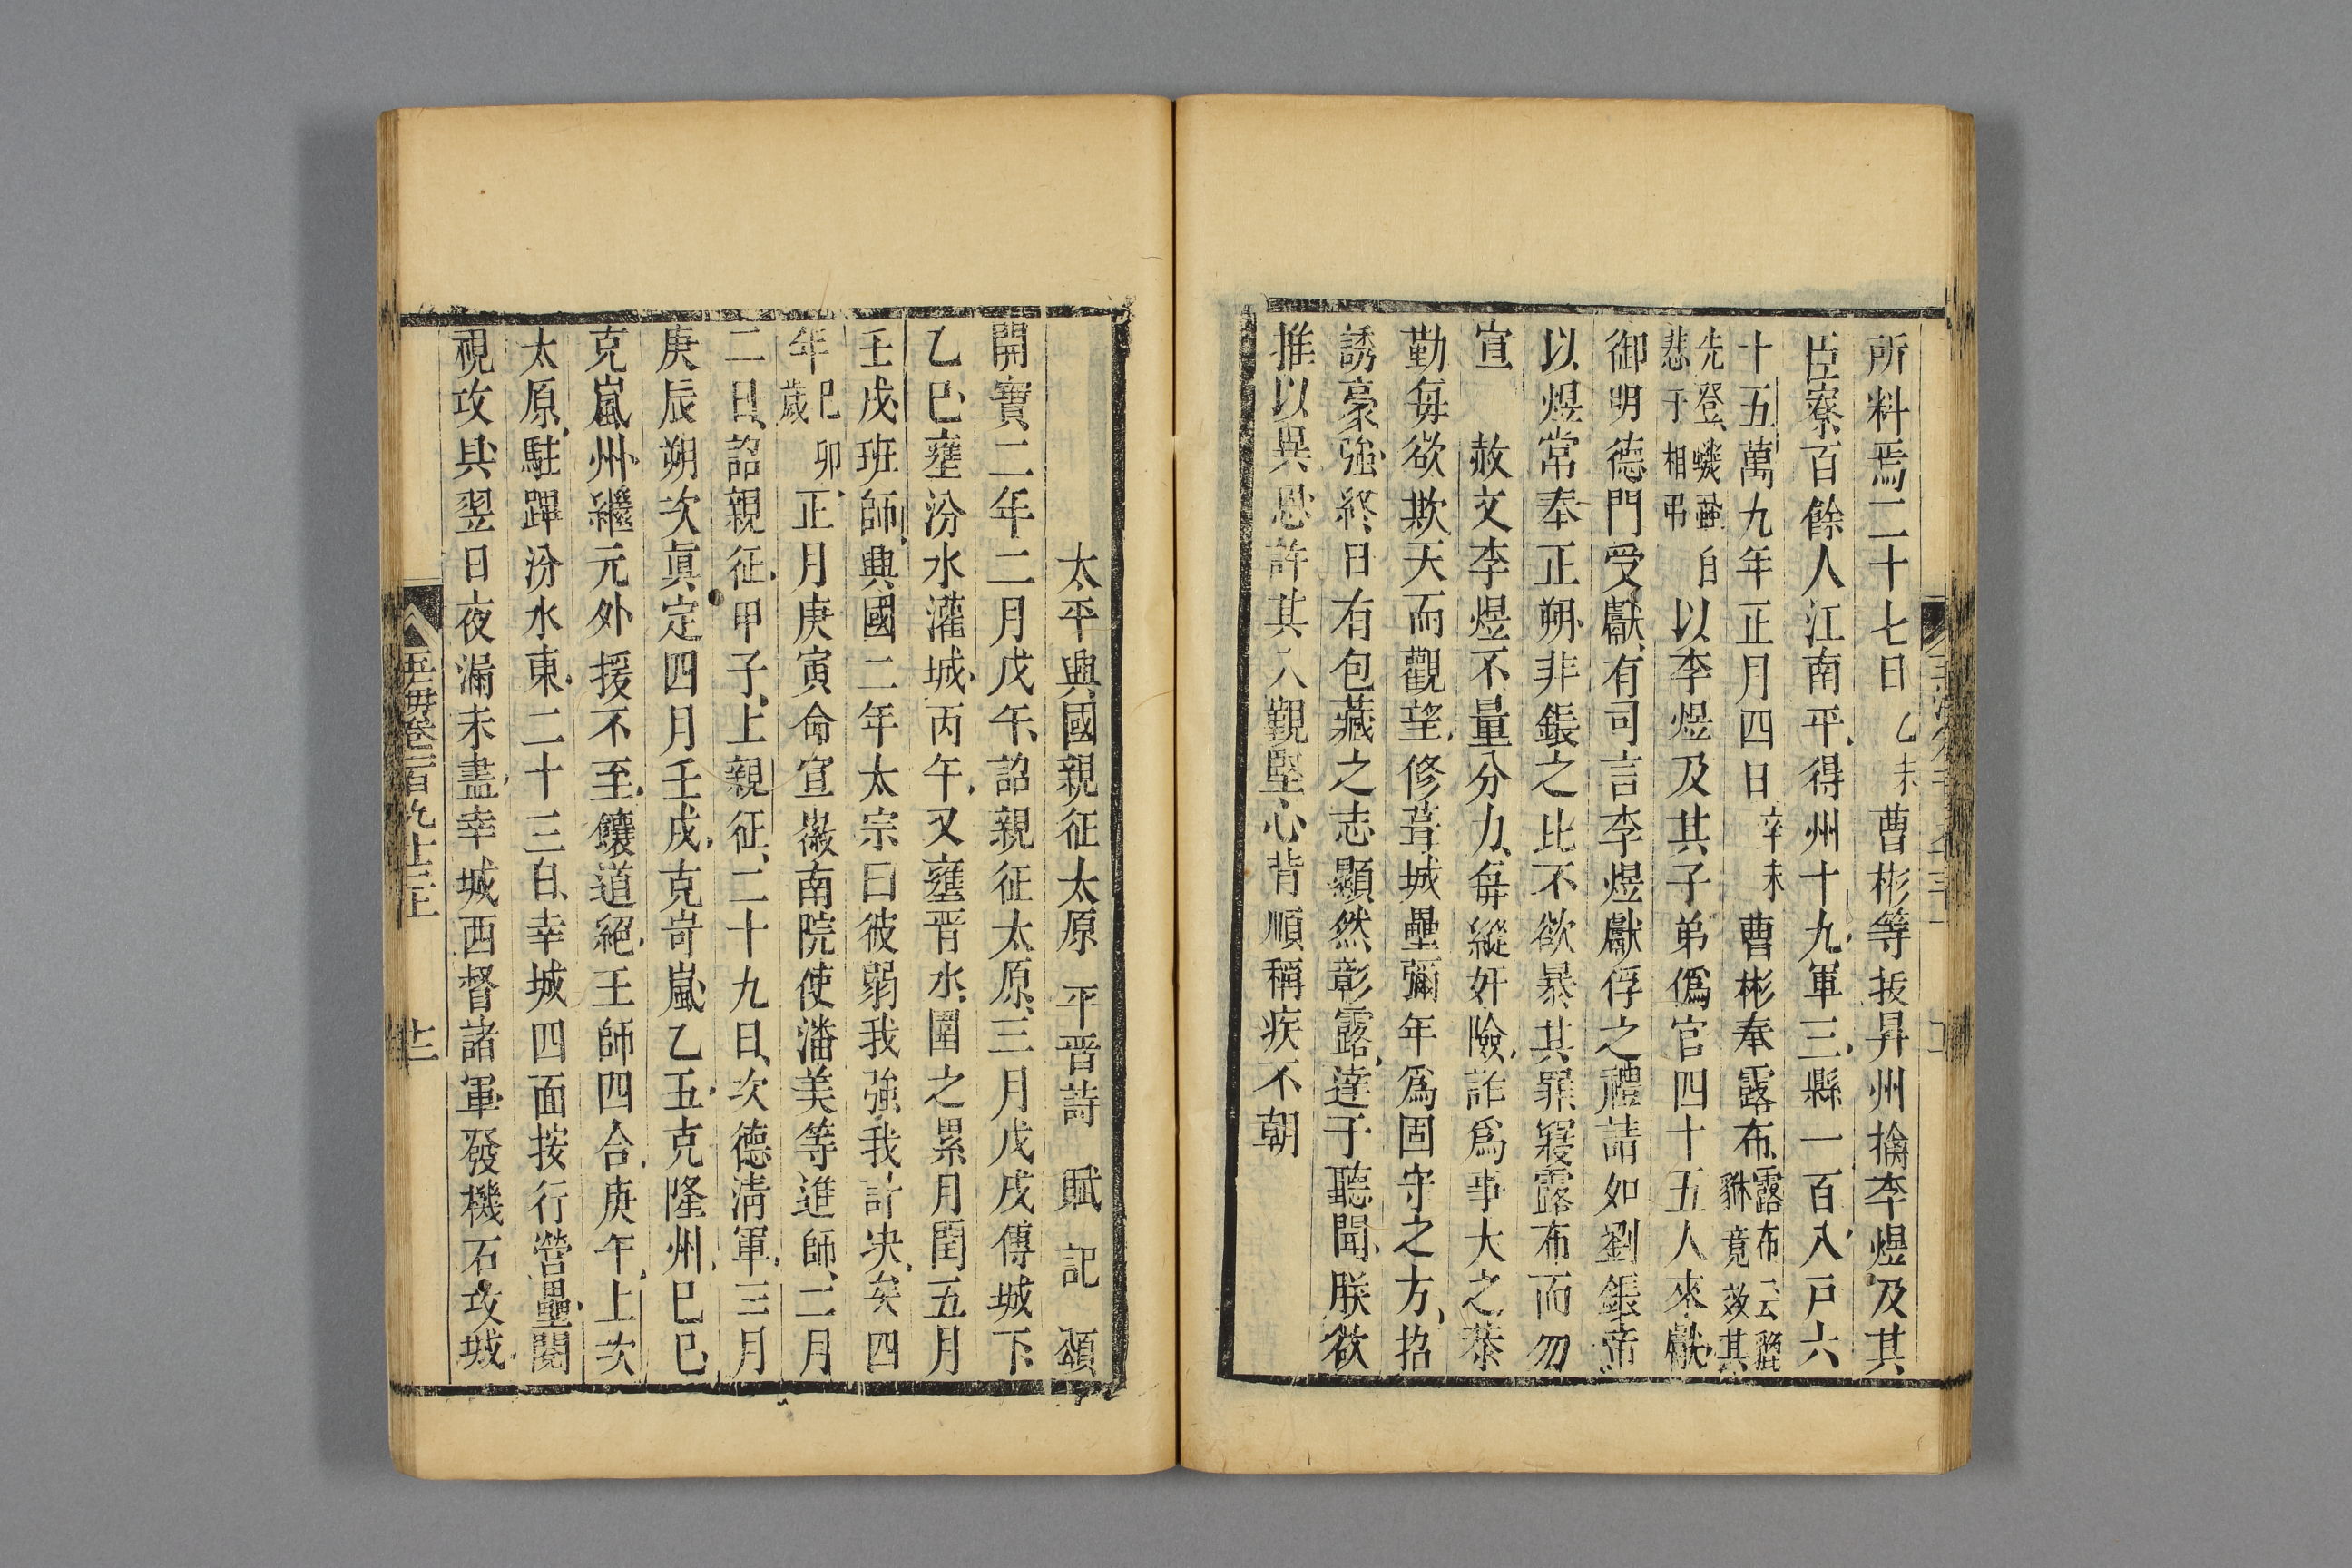 所料焉二十七日乙未曹彬等拔昇州擒李煜及其
臣寮百餘人江南平得州十九軍三縣一百八戶六
十五萬九年正月四日辛未曹彬奉露布露布云貔貅竟效其
先登蟣蝨自悲于相弔以李煜及其子弟僞官四十五人來獻
御明德門受獻有司言李煜獻俘之禮請如劉鋹帝
以煜常奉正朔非鋹之比不欲暴其罪寢露布而勿
宣 赦文李煜不量分力每縱奸險詐爲事大之恭
勤每欲欺天而觀望修葺城壘彌年爲固守之方招
誘豪強終日有包藏之志顯然彰露達于聽聞朕欲
推以異恩許其入覲堅心背順稱疾不朝
太平興國親征太原 平晉詩 賦 記 頌
開寶二年二月戊午詔親征太原三月戊戌傳城下
乙巳壅汾水灌城丙午又壅晉水圍之累月閏五月
壬戌班師興國二年太宗曰彼弱我強我計決矣四
年歲巳卯正月庚寅命宣徽南院使潘美等進師二月
二日詔親征甲子上親征二十九日次德淸軍三月
庚辰朔次眞定四月壬戌克岢嵐乙丑克隆州巳巳
克嵐州繼元外援不至饟道絕王師四合庚午上次
太原駐蹕汾水東二十三日幸城四面按行營壘閱
視攻具翌日夜漏未盡幸城西督諸軍發機石攻城
玉海卷一百九十三上
十二